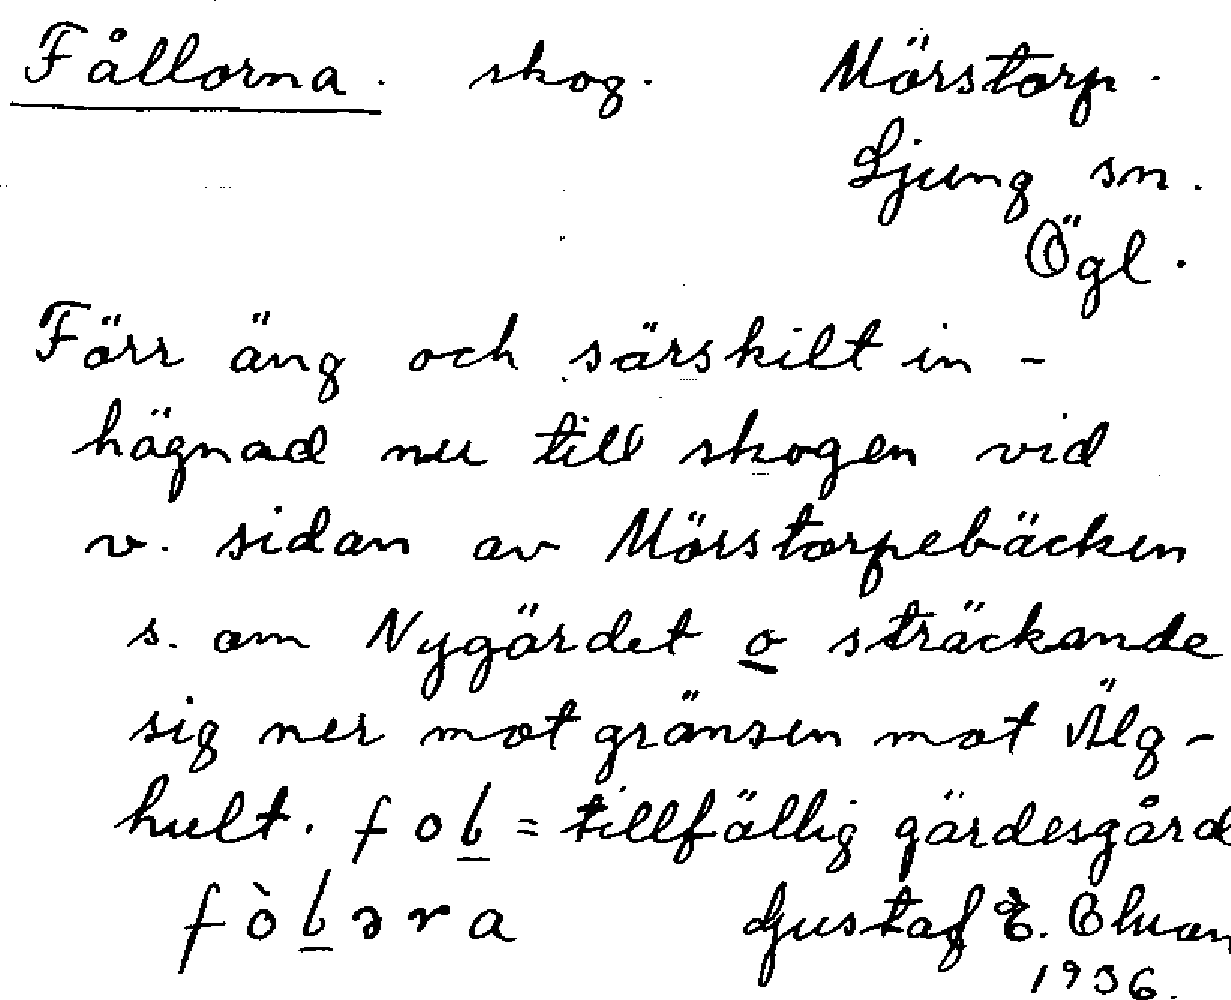 Fållorna. skog. Mörstorp.
Ljung sn.
Ögl.
Förr äng och särskilt in-
hägnad nu till skogen vid
v. sidan av Mörstorpebäcken
s. om Nygärdet o sträckande
sig ner mot gränsen mot Älg-
hult. = tillfällig gärdesgård
Gustaf E.
1936.